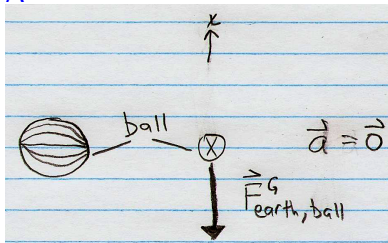 x
ball
X
a⃗ = 0⃗
F⃗ᴳ earth, ball